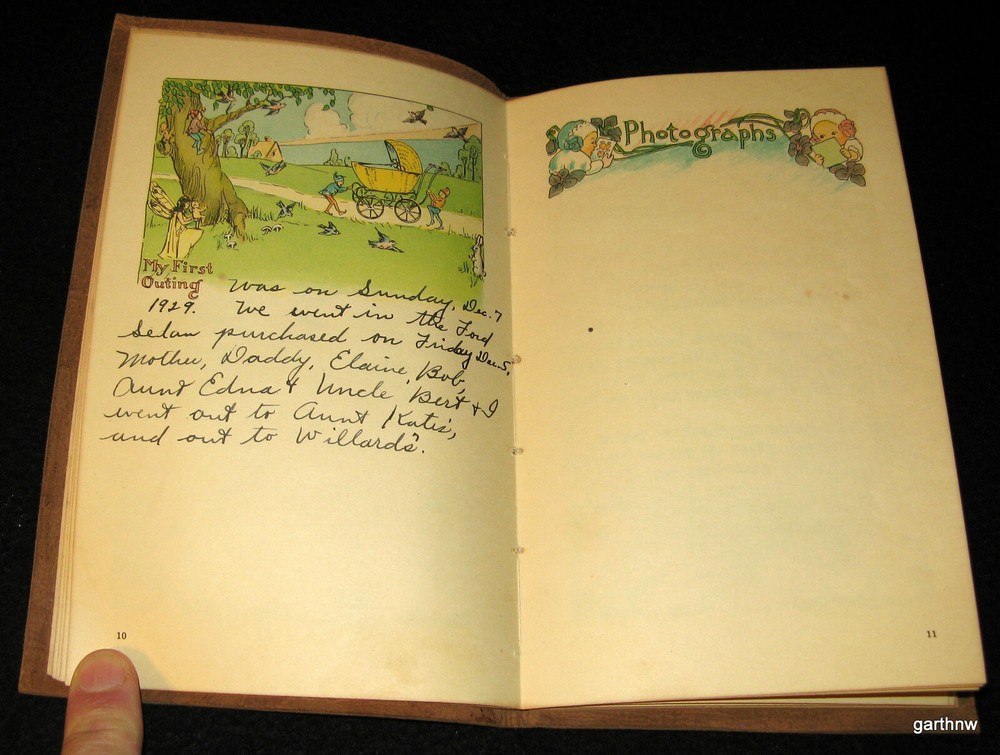 My First
Outing
Was on Sunday, Dec. 7
1929. We went in the Ford
Sedan purchased on Friday Dec. 5,
Mother, Daddy, Elaine, Bob,
Aunt Edna & Uncle Bert & I
went out to Aunt Kate's,
and out to Willards".
10
Photographs
11
garthnw